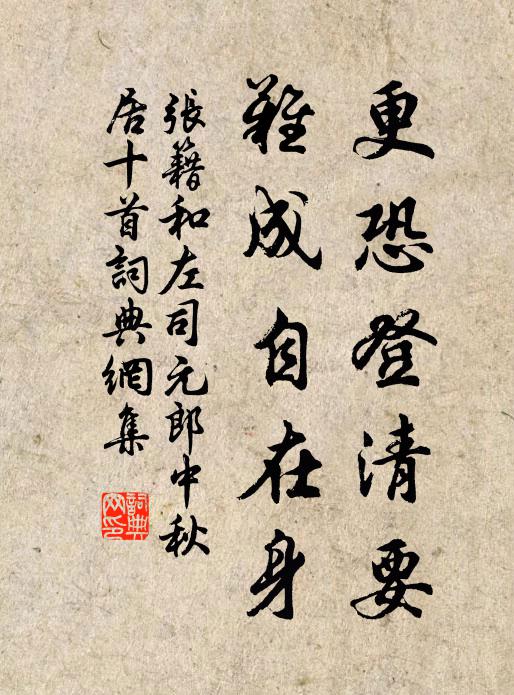 更恐登清要
難成自在身
張籍和左司元郎中秋
居十首詞典網集
詞典
网印